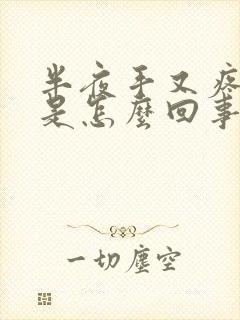 半夜手又疼
是怎麼回事
一切塵空